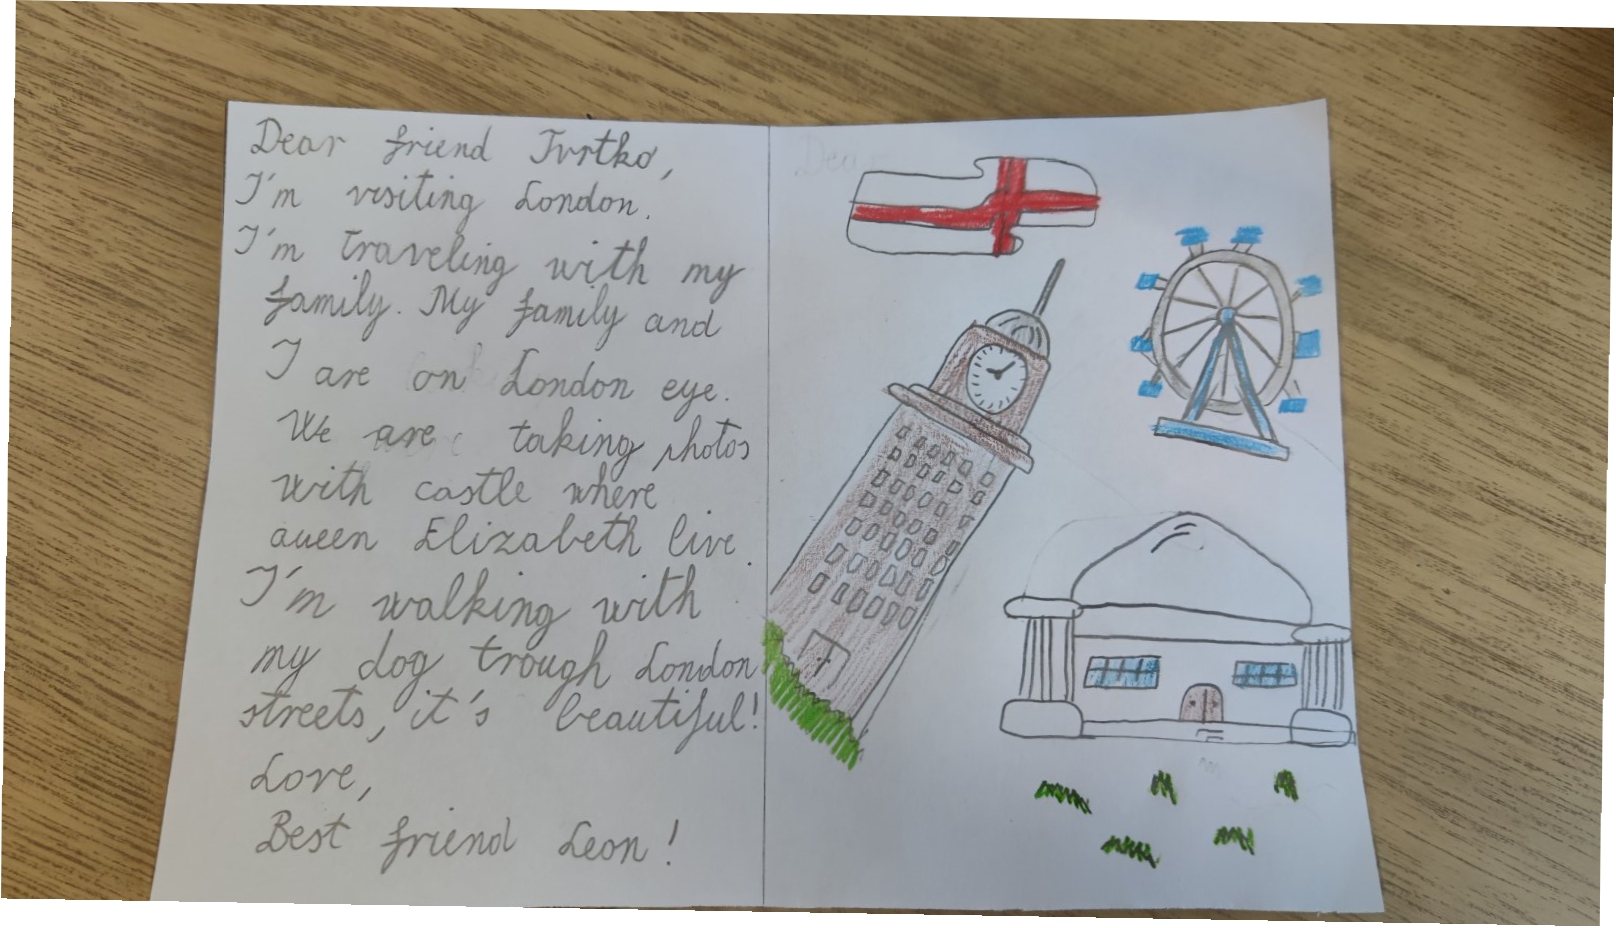 Dear friend Tvrtko,
I'm visiting London.
I'm traveling with my
family. My family and
I are on London eye.
We are taking photos
with castle where
queen Elizabeth live.
I'm walking with
my dog trough London
streets, it's beautiful!
Love,
Best friend Leon!
Dear